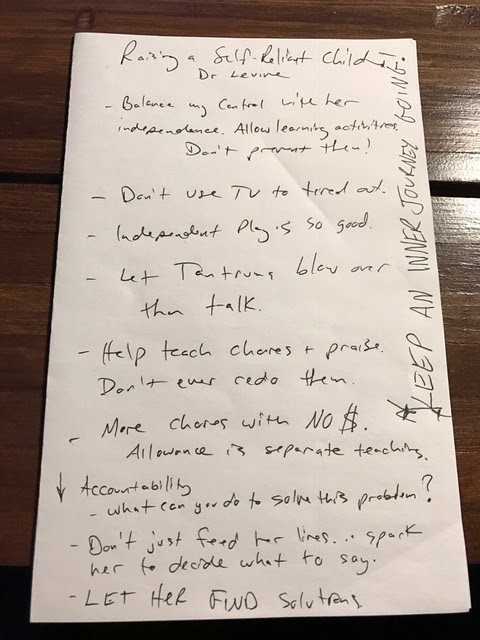 Raising a Self-Reliant Child!
Dr Levine
- Balance my Control with her
independence. Allow learning activities.
Don't prevent them!
- Don't use TV to tired out.
- Independent Play is so good.
- Let Tantrums blow over
then talk.
- Help teach chores + praise.
Don't ever redo them.
- More chores with NO $.
Allowance is separate teaching.
↓ Accountability
- what can you do to solve this problem?
- Don't just feed her lines... spark
her to decide what to say.
- LET HER FIND Solutions
*KEEP AN INNER JOURNEY GOING!